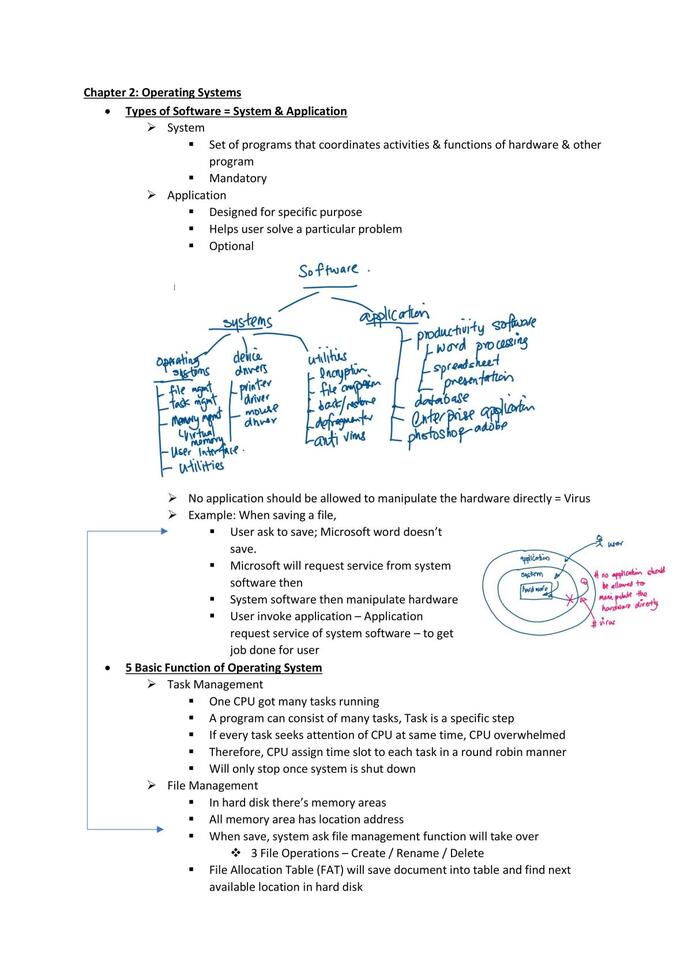 Chapter 2: Operating Systems
• Types of Software = System & Application
➢ System
▪ Set of programs that coordinates activities & functions of hardware & other
program
▪ Mandatory
➢ Application
▪ Designed for specific purpose
▪ Helps user solve a particular problem
▪ Optional
Software.
systems
application
operating
systems
file mgmt
task mgmt
memory mgmt
virtual
memory
User Interface.
utilities
device
drivers
printer
driver
mouse
driver
utilities
encryption
file
back/restore
defragmenter
anti virus
productivity software
word processing
spreadsheet
presentation
database
enterprise application
photoshop-adobe
➢ No application should be allowed to manipulate the hardware directly = Virus
➢ Example: When saving a file,
▪ User ask to save; Microsoft word doesn't
save.
▪ Microsoft will request service from system
software then
▪ System software then manipulate hardware
▪ User invoke application – Application
request service of system software – to get
job done for user
user
application
system
hardware
# no application should
be allowed to
manipulate the
hardware directly
# virus
• 5 Basic Function of Operating System
➢ Task Management
▪ One CPU got many tasks running
▪ A program can consist of many tasks, Task is a specific step
▪ If every task seeks attention of CPU at same time, CPU overwhelmed
▪ Therefore, CPU assign time slot to each task in a round robin manner
▪ Will only stop once system is shut down
➢ File Management
▪ In hard disk there's memory areas
▪ All memory area has location address
▪ When save, system ask file management function will take over
❖ 3 File Operations – Create / Rename / Delete
▪ File Allocation Table (FAT) will save document into table and find next
available location in hard disk